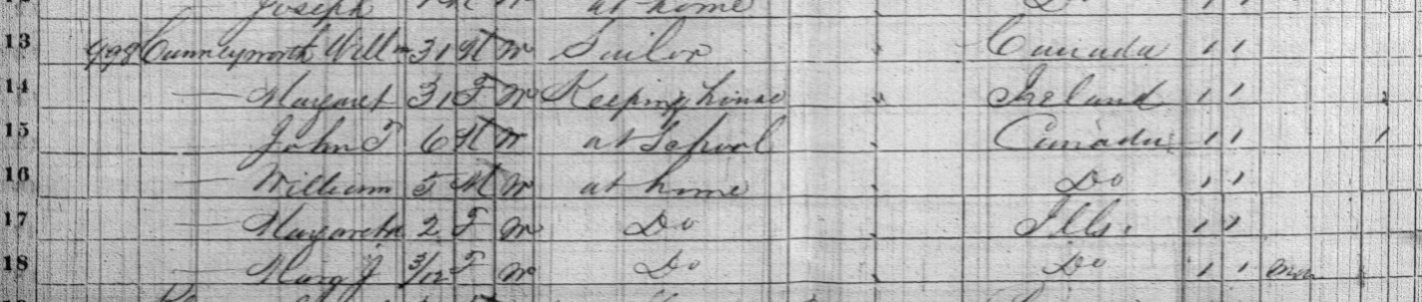 Joseph at home Do
13 998 Will 31 M W Sailor Canada ''
14 — Margaret 31 F W Keeping house Ireland ''
15 — John F 6 M W at School Canada ''
16 — William 5 M W at home Do ''
17 — Margaretta 2 F W Do Ills. ''
18 — Mary J 3/12 F W Do Do ''